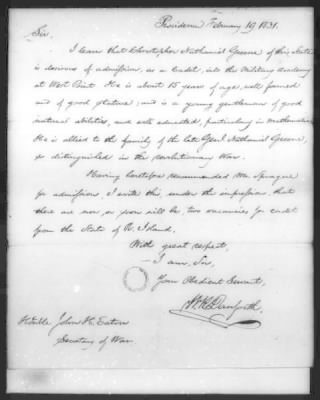 Providence February 19, 1831.
Sir,
I learn that Christopher Nathaniel Greene of this State
is desirous of admission, as a Cadet, into the Military Academy
at West Point. He is about 15 years of age, well formed
and of good stature; and is a young gentleman of good
natural abilities, and well educated, particularly in mathematics.
He is allied to the family of the late Genl. Nathaniel Greene,
so distinguished in the revolutionary War.
Having heretofore recommended Mr. Sprague
for admission, I write this, under the impression, that
there are now, or soon will be, two vacancies for cadets
from the State of R. Island.
With great respect,
I am, Sir,
Your Obedient Servant,
Honble John H. Eaton
Secretary of War